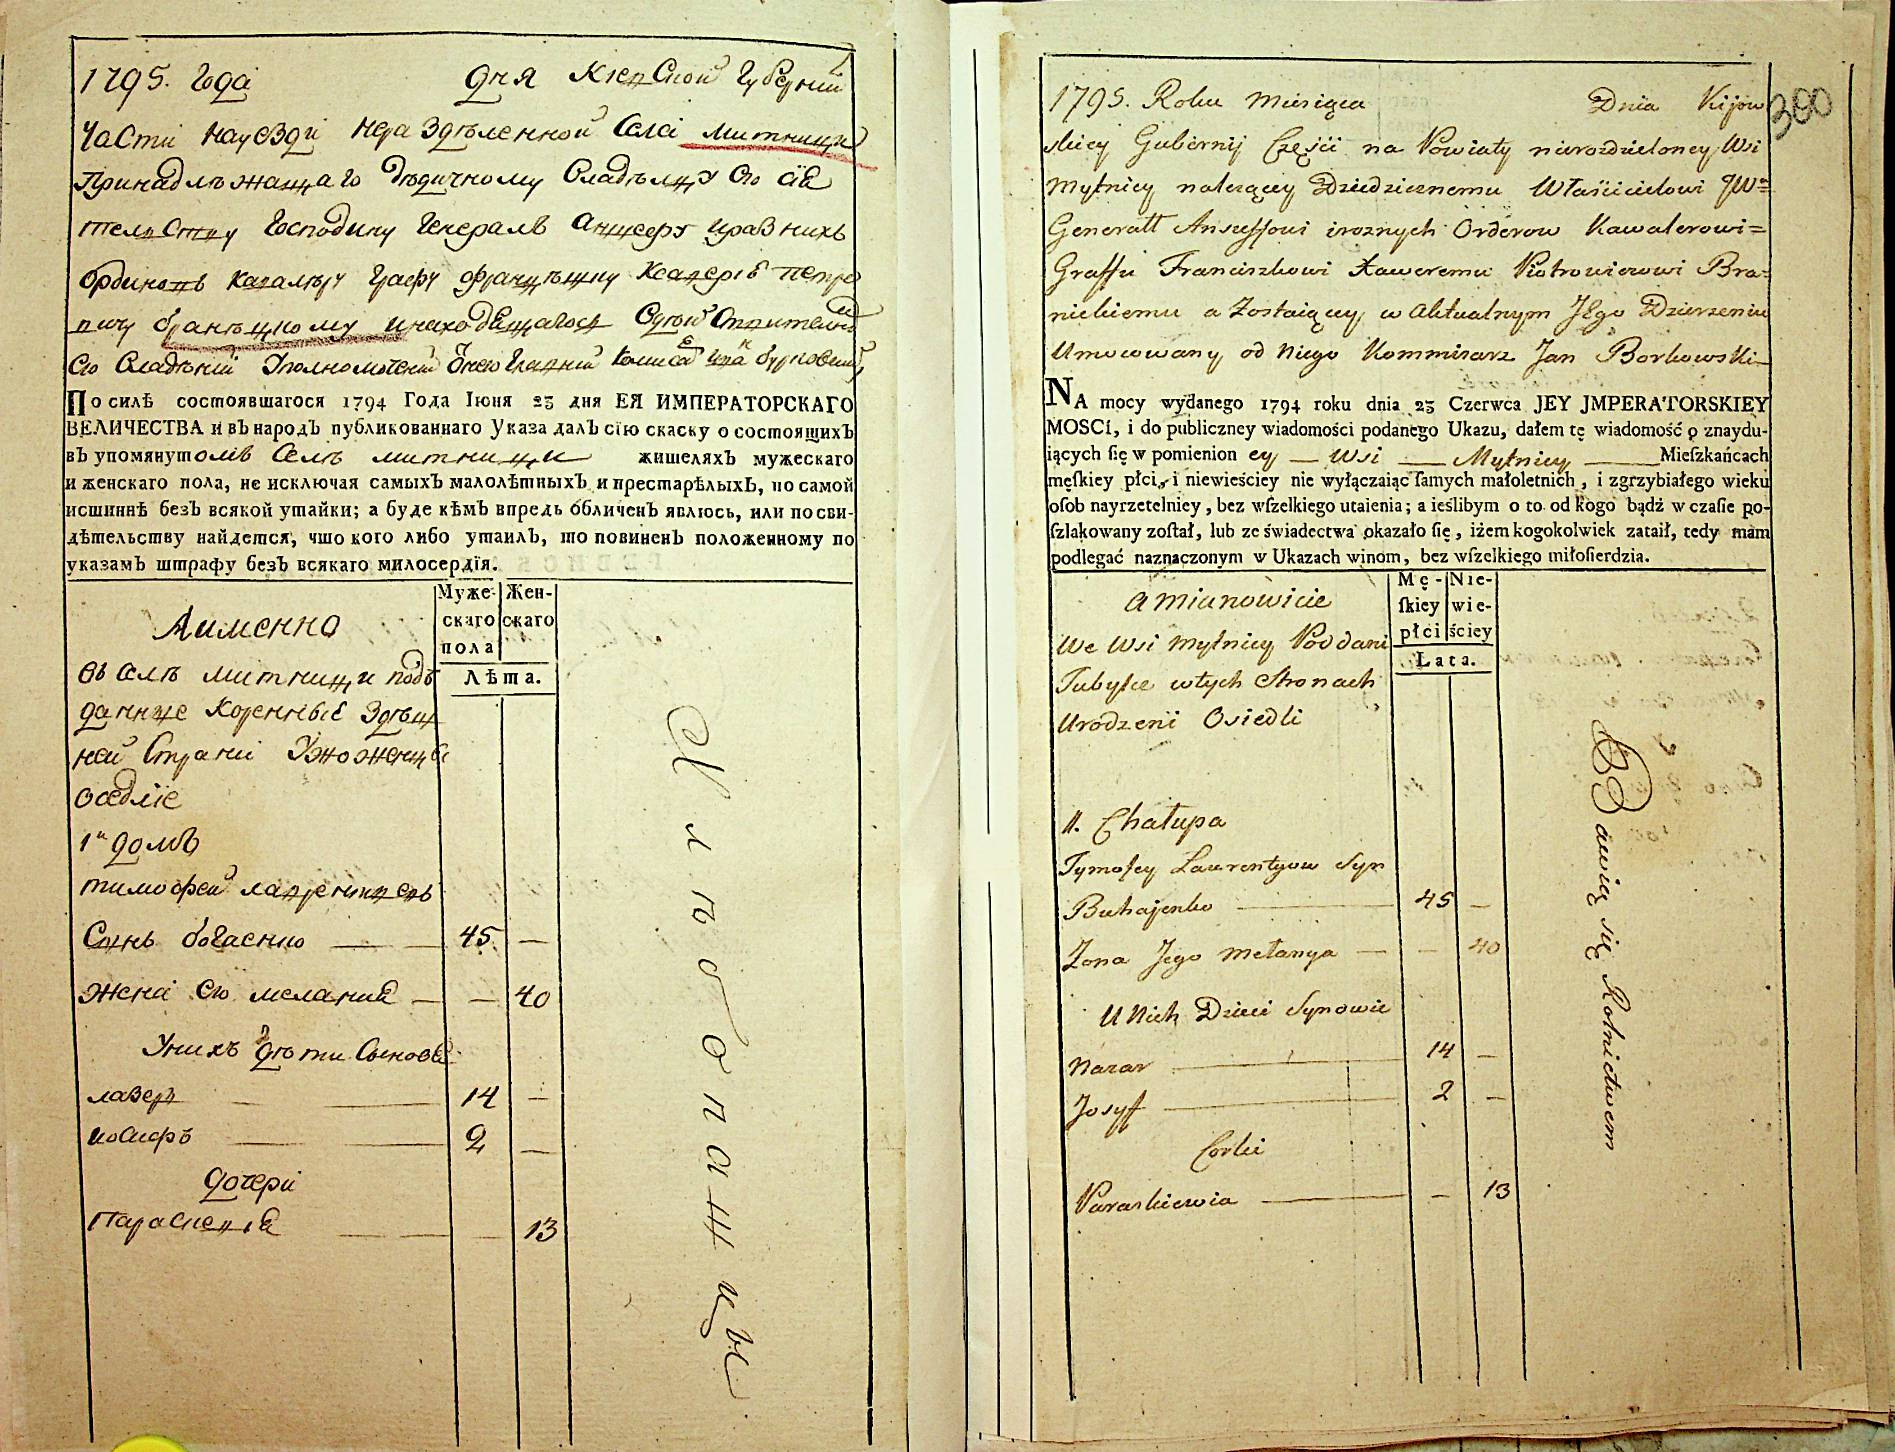 1795. Года дня Кіевской Губерніи
части науезди неразделенной села митници
принадлежащаго дедичному владельцу его сія
тельству Господину Генералъ аншефу иразныхъ
ординовъ кавалеру графу францышку Ксаверію петро
вичу браницкому инаходящагося
его владеній Уполномоченій
По силѣ состоявшагося 1794 Года Іюня 23 дня ЕЯ ИМПЕРАТОРСКАГО
ВЕЛИЧЕСТВА и въ народъ публикованнаго Указа далъ сію скаску о состоящихъ
въ упомянутомъ Селъ митници жителяхъ мужескаго
и женскаго пола, не исключая самыхъ малолѣтныхъ и престарѣлыхъ, по самой
истиннѣ безъ всякой утайки; а буде кѣмъ впредь обличенъ явлюсь, или по сви-
дѣтельству найдется, что кого либо утаилъ, то повиненъ положенному по
указамъ штрафу безъ всякаго милосердія.
Муже-
скаго
пола
Жен-
скаго
Лѣта.
Аименно
въ селъ митници подъ
данные коренные здеш
ней страни
оседліе
1й домъ
тимофей лаврентиевъ
сынъ богаенко — 45. —
жена его мелания — — 40
Унихъ дети Сыновя
лазеръ — 14 —
иосифъ — 2 —
дочери
параскевия — — 13
Хлебопашцы
300
1795. Roku Miesiąca Dnia Kijow
skiey Gubernij Części na Powiaty nierozdzieloney Wsi
Mytnicy należącey Dziedzicznemu Włascicielowi JWu
Generałł Ansześsowi iroznych Orderow Kawalerowi=
Graffu Franciszkowi Xaweremu Piotrowiczowi Bra-
nickiemu a zostaiącey w aktualnym JEgo Dzierzeniu
Umocowany od niego Kommisarz Jan Borkowski—
NA mocy wydanego 1794 roku dnia 23 Czerwca JEY JMPERATORSKIEY
MOSCI, i do publiczney wiadomości podanego Ukazu, dałem tę wiadomość o znaydu-
iących ſię w pomienion ey — Wsi — Mytnicy — Mieſzkańcach
męſkiey płci, i niewieściey nie wyłączaiąc ſamych małoletnich, i zgrzybiałego wieku
oſob nayrzetelniey, bez wſzelkiego utaienia; a ieślibym o to od kogo bądź w czaſie po-
ſzlakowany zoſtał, lub ze świadectwa okazało ſię, iżem kogokolwiek zataił, tedy mam
podlegać naznaczonym w Ukazach winom, bez wſzelkiego miłoſierdzia.
Mę-
ſkiey
płci
Nie-
wie-
ściey
Lata.
amianowicie
we wsi Mytnicy Poddani
Tubylce wtych stronach
Urodzeni Osiedli
1. Chałupa
Tymofey Laurentyow Syn
Buhajenko — 45 —
Żona Jego Melanya — — 40
U Nich Dzieci Synowie
Nazar — 14 —
Josyf — 2 —
Corki
Paraskiewia — — 13
Bawią się Rolnictwem